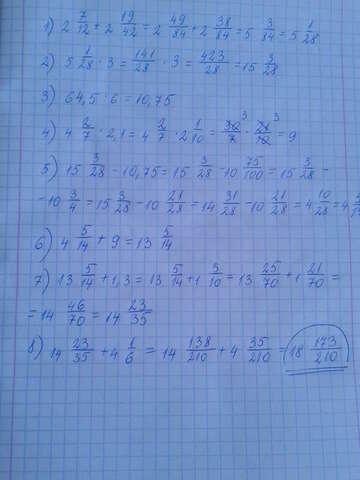 1) 2 7/12 + 2 19/42 = 2 49/84 + 2 38/84 = 5 3/84 = 5 1/28
2) 5 1/28 · 3 = 141/28 · 3 = 423/28 = 15 3/28
3) 64,5 : 6 = 10,75
4) 4 2/7 · 2,1 = 4 2/7 · 2 1/10 = 30/7 3 · 21/10 3 = 9
5) 15 3/28 - 10,75 = 15 3/28 - 10 75/100 = 15 3/28 -
- 10 3/4 = 15 3/28 - 10 21/28 = 14 31/28 - 10 21/28 = 4 10/28 = 4
6) 4 5/14 + 9 = 13 5/14
7) 13 5/14 + 1,3 = 13 5/14 + 1 3/10 = 13 25/70 + 1 21/70 =
= 14 46/70 = 14 23/35
8) 14 23/35 + 4 1/6 = 14 138/210 + 4 35/210 = 18 173/210